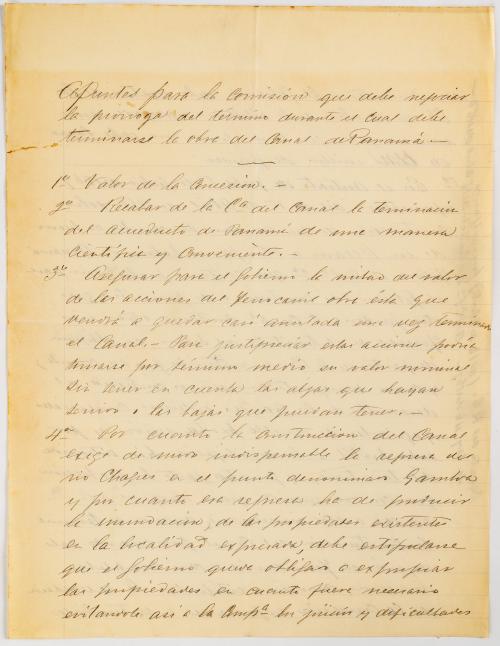 Apuntes para la Comisión que debe negociar
la prórroga del término durante el cual debe
terminarse la obra del Canal de Panamá.—
1º Valor de la Concesión.—
2º Recabar de la Cª del Canal la terminación
del Acueducto de Panamá de una manera
Científica y Conveniente.—
3º Asegurar para el Gobierno la mitad del valor
de las acciones del Ferrocarril obra ésta que
vendrá a quedar casi anulada una vez terminado
el Canal.— Para justipreciar estas acciones podría
tomarse por término medio su valor nominal
sin tener en cuenta las alzas que hayan
tenido o las bajas que puedan tener.—
4º Por cuanto la construccion del Canal
exige de modo indispensable la represa del
rio Chagres en el punto denominado Gamboa
y por cuanto esa represa ha de producir
la inundación, de las propiedades existentes
en la localidad expresada, debe estipularse
que el Gobierno quede obligado a expropiar
las propiedades en cuanto fuere necesario
evitandole así a la Compª y dificultades